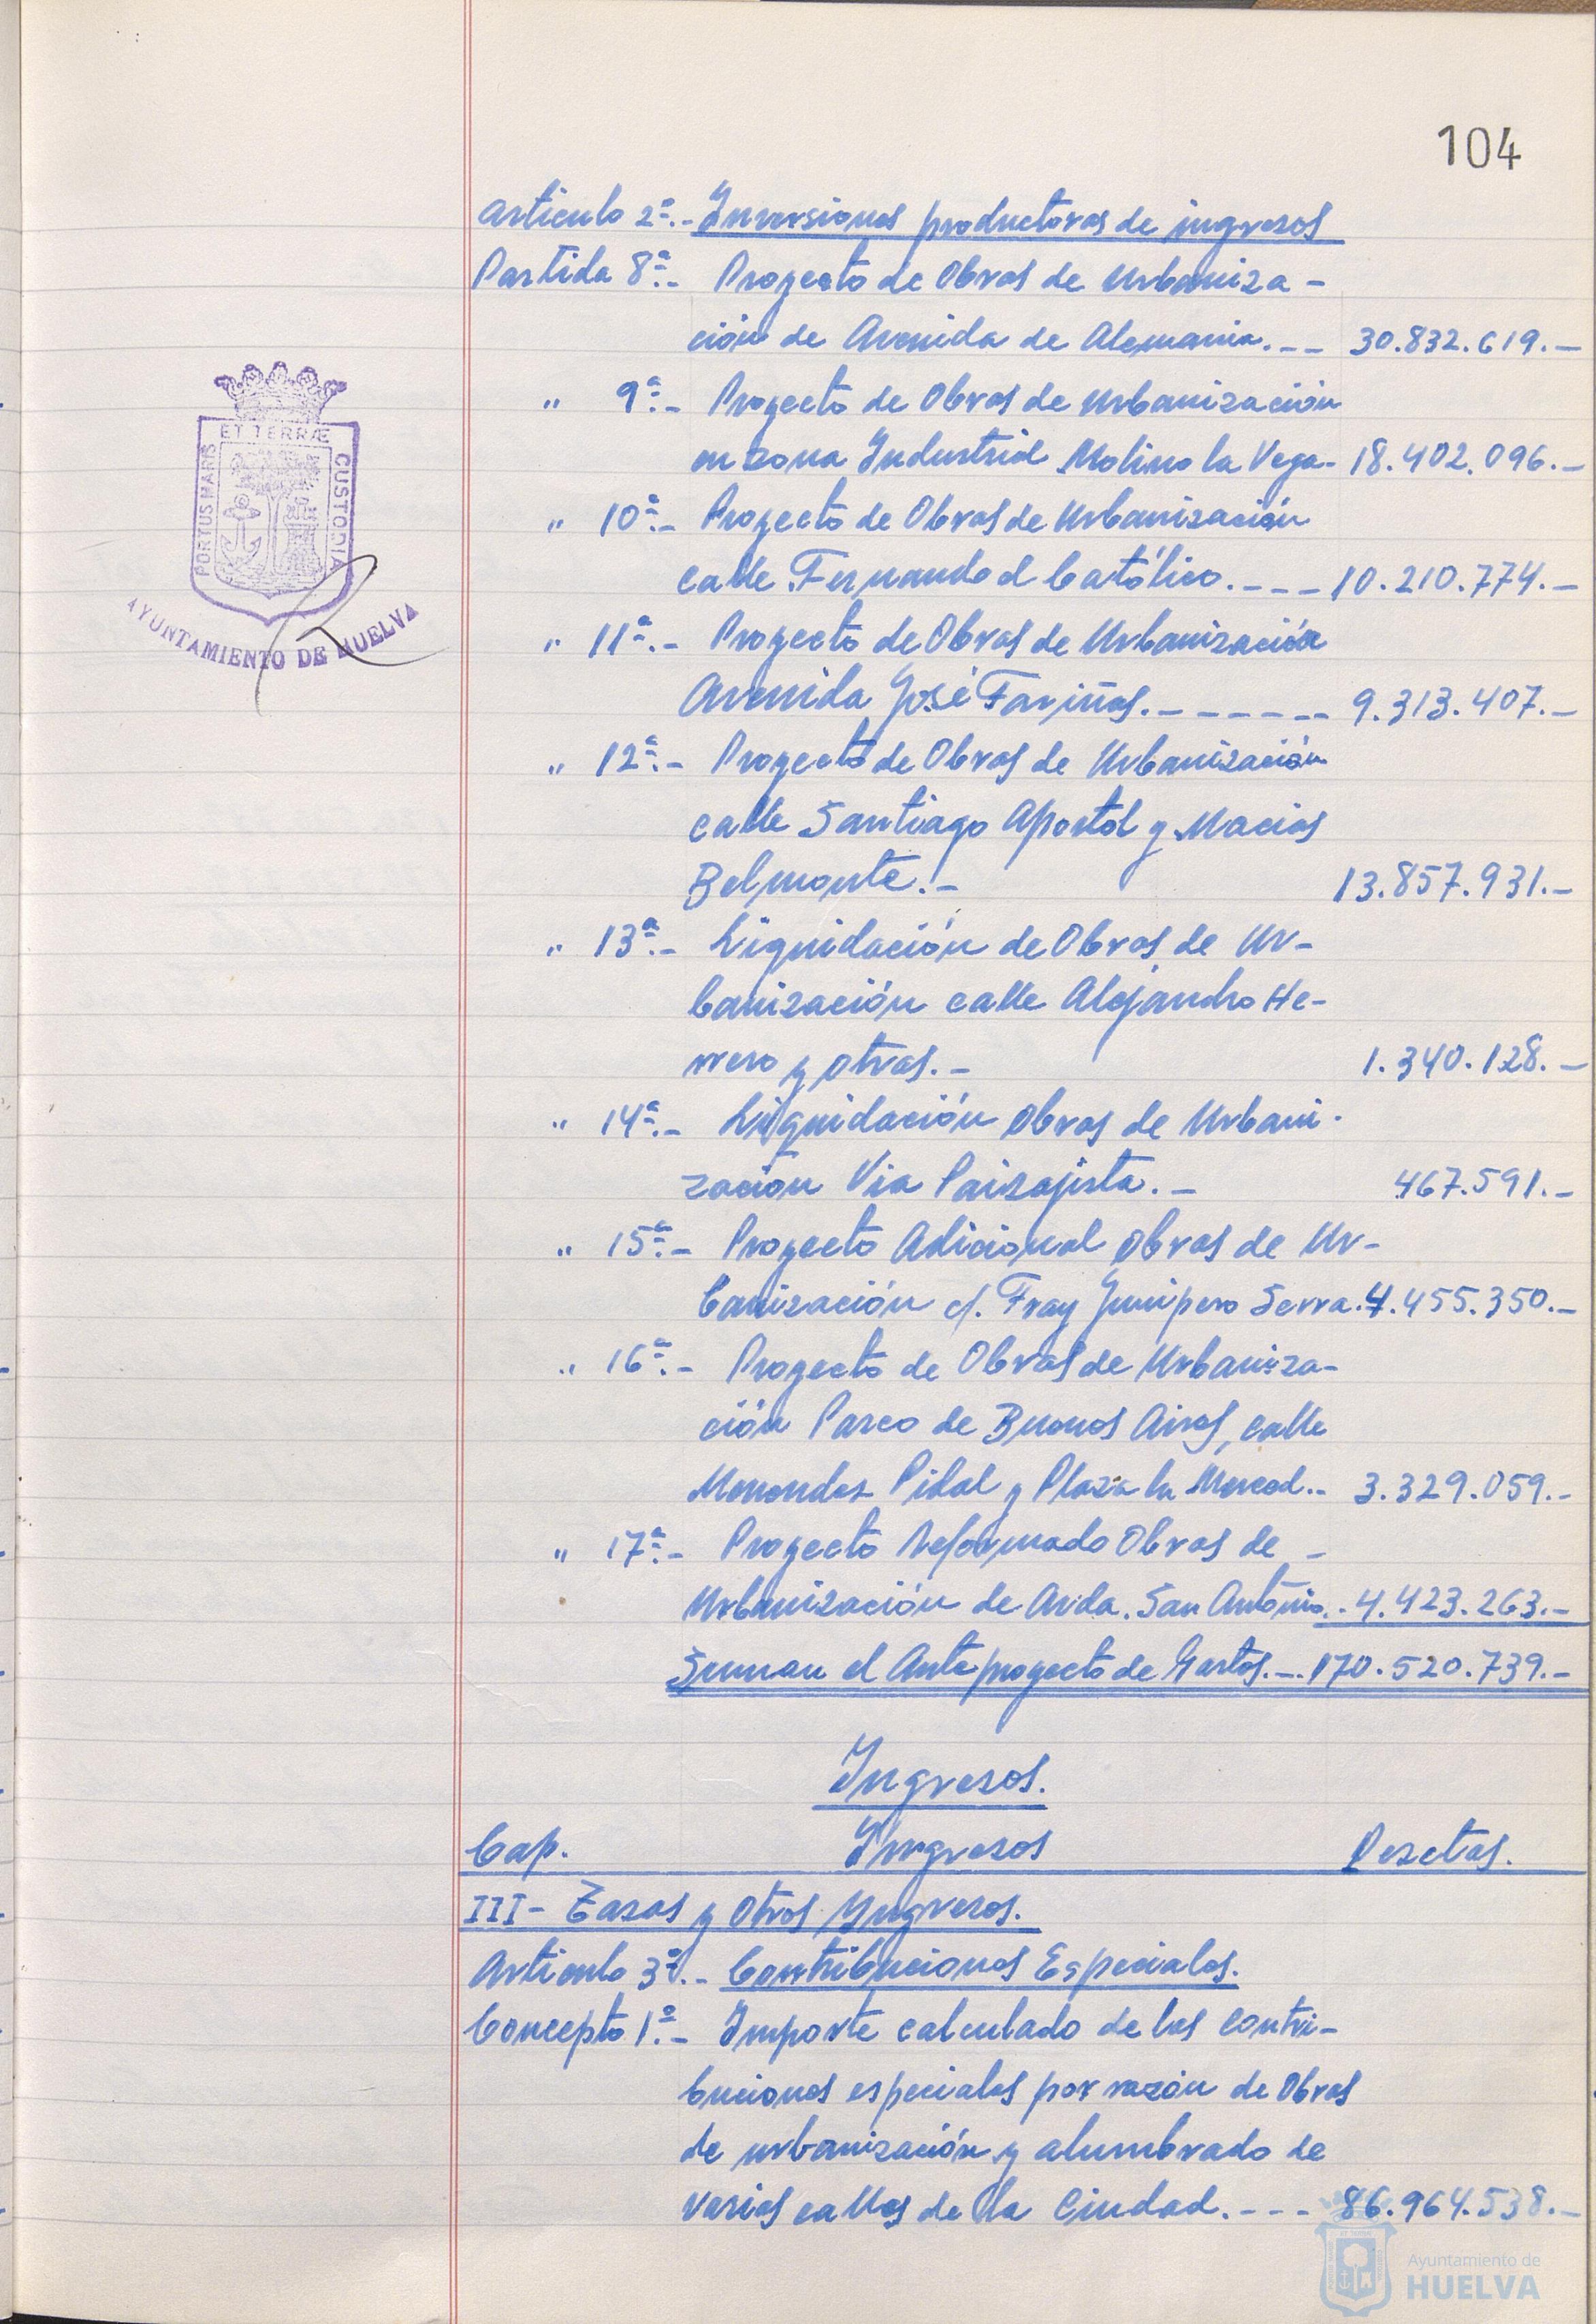 104
Articulo 2º.- Inversiones productoras de ingresos
Partida 8ª.- Proyecto de Obras de Urbaniza-
ción de Avenida de Alemania.-- 30.832.619.-
" 9ª.- Proyecto de Obras de Urbanización
en zona Industrial Molino la Vega- 18.402.096.-
" 10ª.- Proyecto de Obras de Urbanización
calle Fernando el Católico.---- 10.210.774.-
" 11ª.- Proyecto de Obras de Urbanización
Avenida José Fariñas.------- 9.313.407.-
" 12ª.- Proyecto de Obras de Urbanización
calle Santiago Apostol y Macias
Belmonte.- 13.857.931.-
" 13ª.- Liquidación de Obras de Ur-
banización calle Alejandro He-
rrero y otras.- 1.340.128.-
" 14ª.- Liquidación Obras de Urbani-
zación Via Paisajista.- 467.591.-
" 15ª.- Proyecto Adicional Obras de Ur-
banización c/. Fray Junipero Serra. 4.455.350.-
" 16ª.- Proyecto de Obras de Urbaniza-
ción Paseo de Buenos Aires, calle
Menendez Pidal y Plaza la Merced.. 3.329.059.-
" 17ª.- Proyecto Reformado Obras de -
Urbanización de Avda. San Antonio.. 4.423.263.-
Suman el Anteproyecto de Gastos.-. 170.520.739.-
Ingresos.
Cap. Ingresos Pesetas.
III- Tasas y Otros Ingresos.
Articulo 3º.- Contribuciones Especiales.
Concepto 1º.- Importe calculado de las contri-
buciones especiales por razón de Obras
de urbanización y alumbrado de
varias calles de la Ciudad.---- 86.964.538.-
ET TERRÆ
PORTUS MARIS
CUSTODIA
AYUNTAMIENTO DE HUELVA
Ayuntamiento de
HUELVA